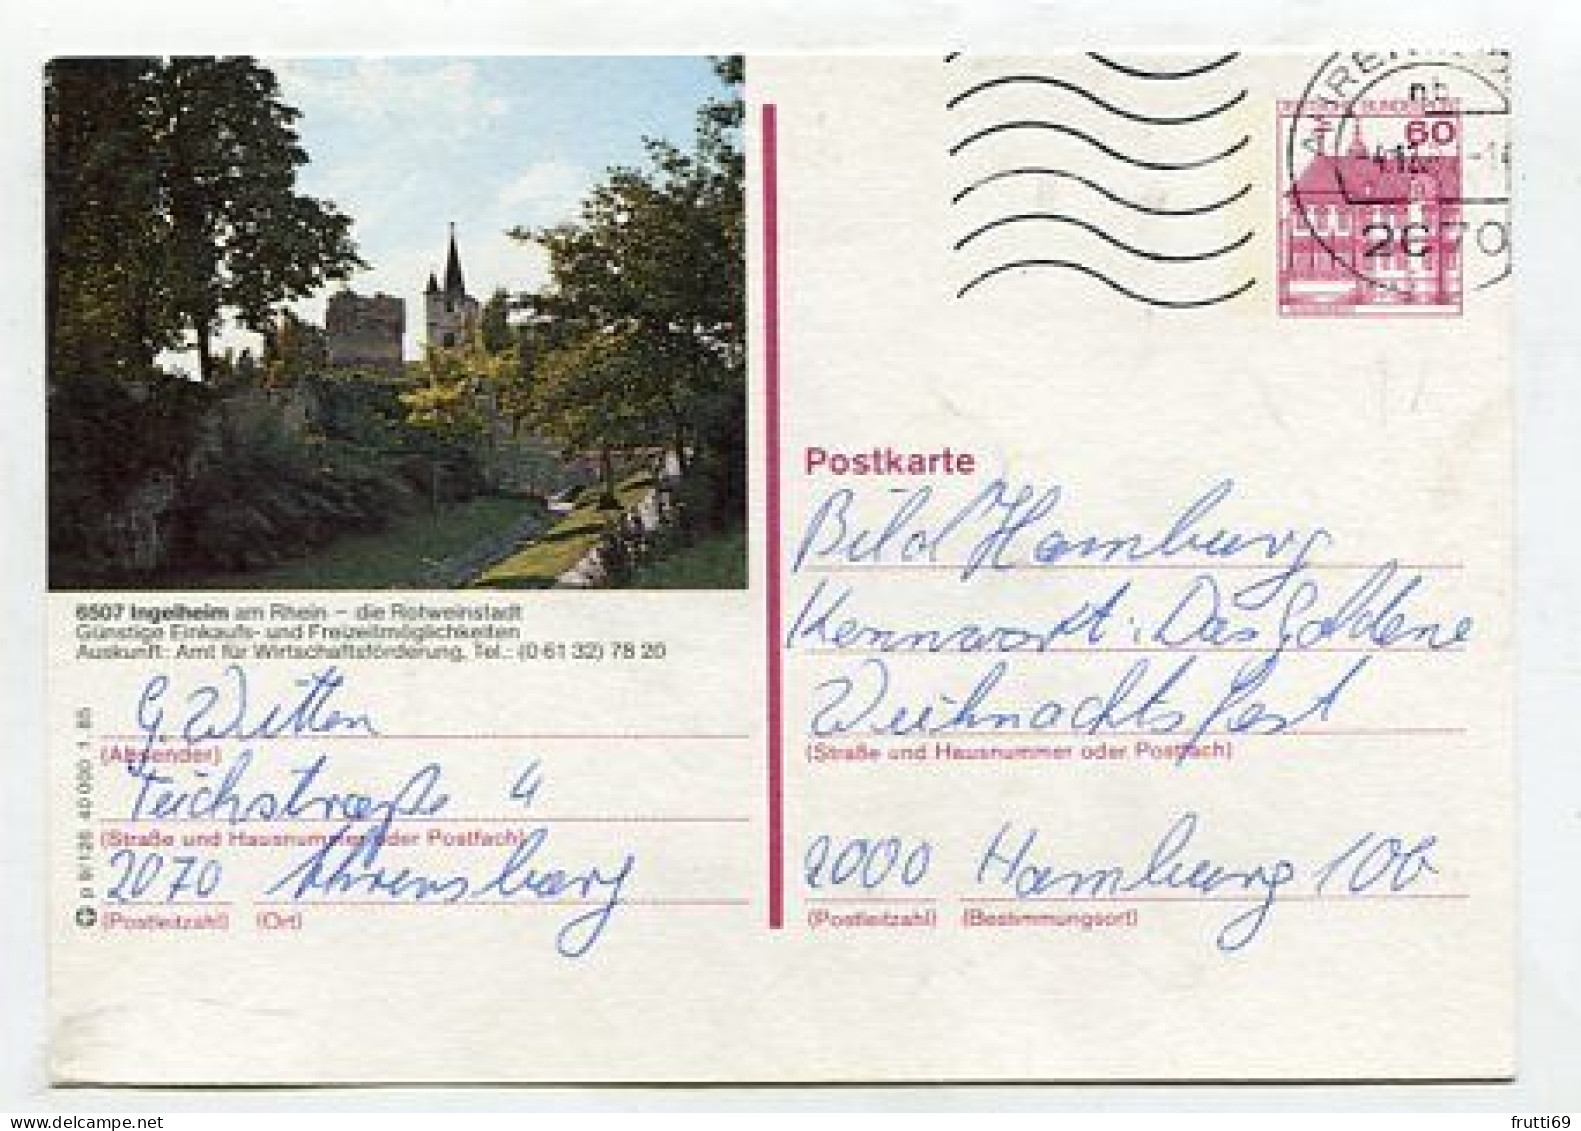 6507 Ingelheim am Rhein – die Rotweinstadt
Günstige Einkaufs- und Freizeitmöglichkeiten
Auskunft: Amt für Wirtschaftsförderung, Tel.: (0 61 32) 78 20
G. Witten
(Absender)
Teichstraße 4
(Straße und Hausnummer oder Postfach)
2070 Ahrensburg
(Postleitzahl) (Ort)
p 9/126 40 000 1.85
DEUTSCHE BUNDESPOST
60
AHREN
2070
Postkarte
Bild Hamburg
Kennwort: Das Goldene
Weihnachtsfest
(Straße und Hausnummer oder Postfach)
2000 Hamburg 100
(Postleitzahl) (Bestimmungsort)
frutti69